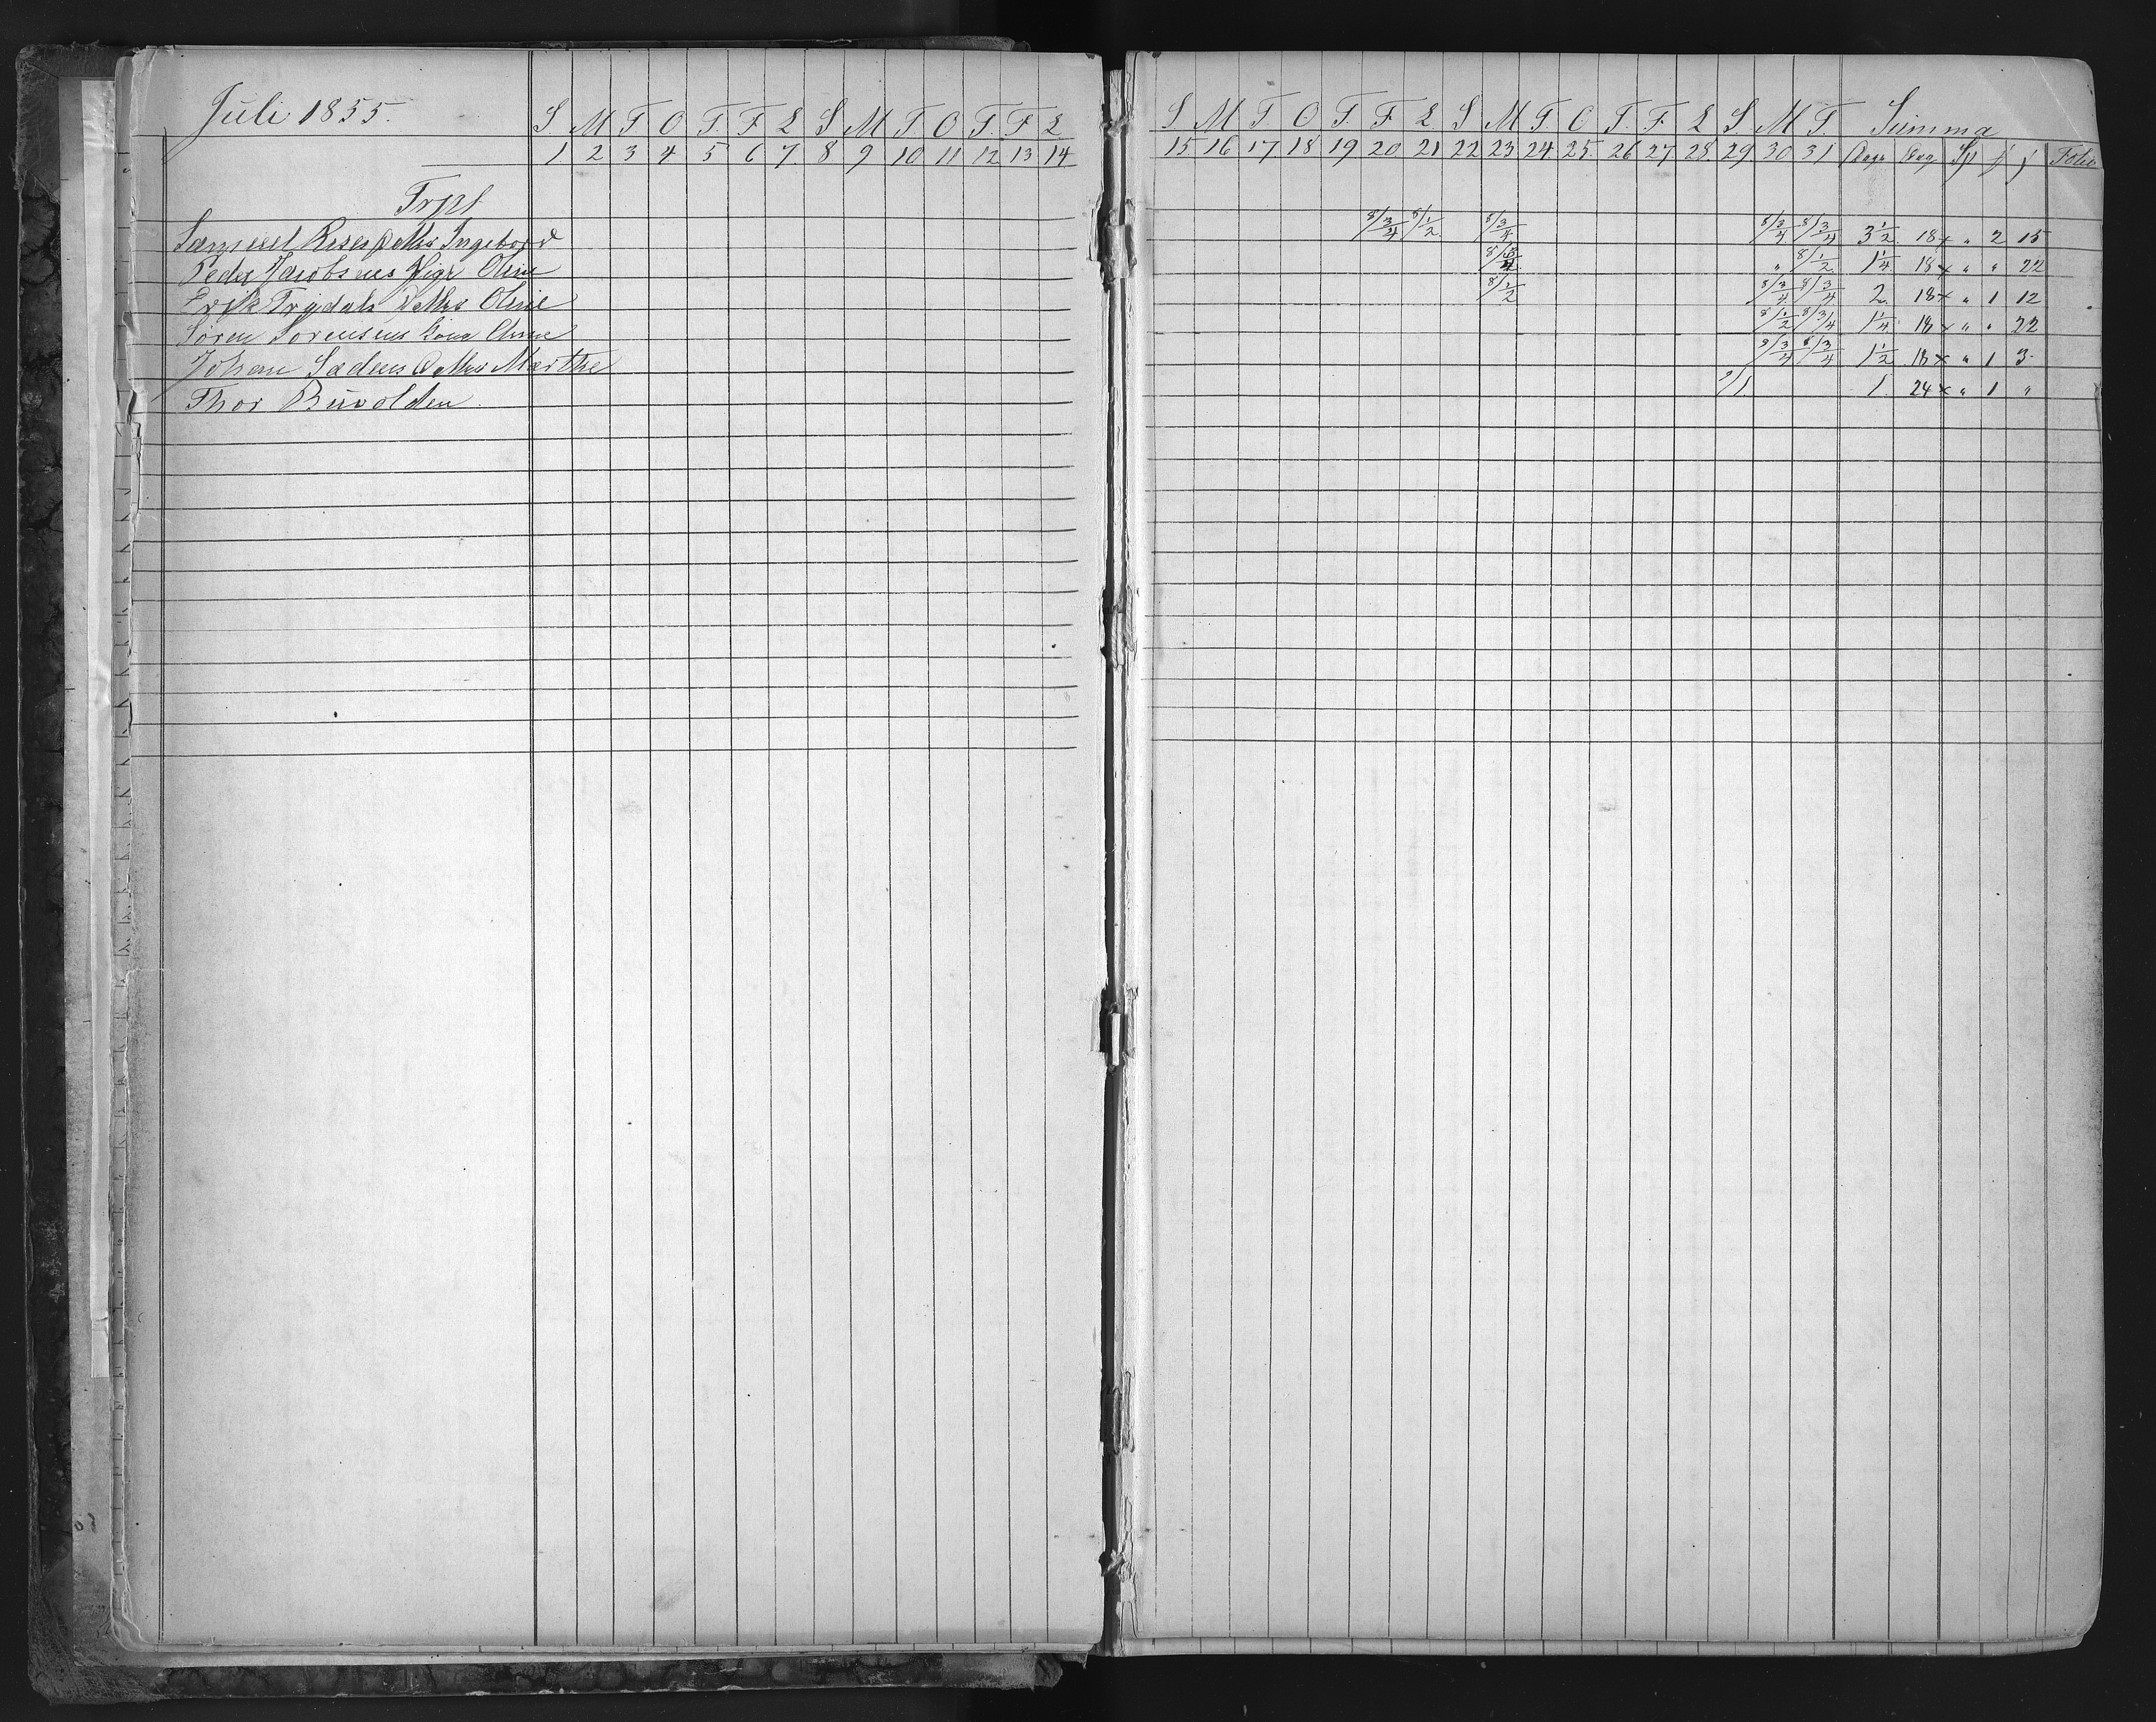 Juli 1855.
S. M T O T. F L S M T. O T. F L S M T O T. F L S M T. O T. F. L S. M T. Summa
1 2 3 4 5 6 7 8 9 10 11 12 13 14 15 16 17 18 19 20 21 22 23 24 25 26 27 28 29 30 31 Dage Dag Sp Folio
Trpt
Samuel Datter Ingebord 8/ 3/4 8/ 1/2 8/ 3/4 8/ 3/4 8/ 3/4 3 1/2 18 x " 2 15
Peder Jacobsens Pige Oline 8/ 3/4 " 8/ 1/2 1 1/4 18 x " " 22
Erik Trydals Datter Oline 8/ 1/2 8/ 3/4 8/ 3/4 2 18 x " 1 12
Søren Sørensens Kone 8/ 1/2 8/ 3/4 1 1/4 18 x " " 22
Johan Datter Marthe 9/ 3/4 8/ 3/4 1 1/2 18 x " 1 3
Thor Buvolden 9/1. 1. 24 x " 1 "